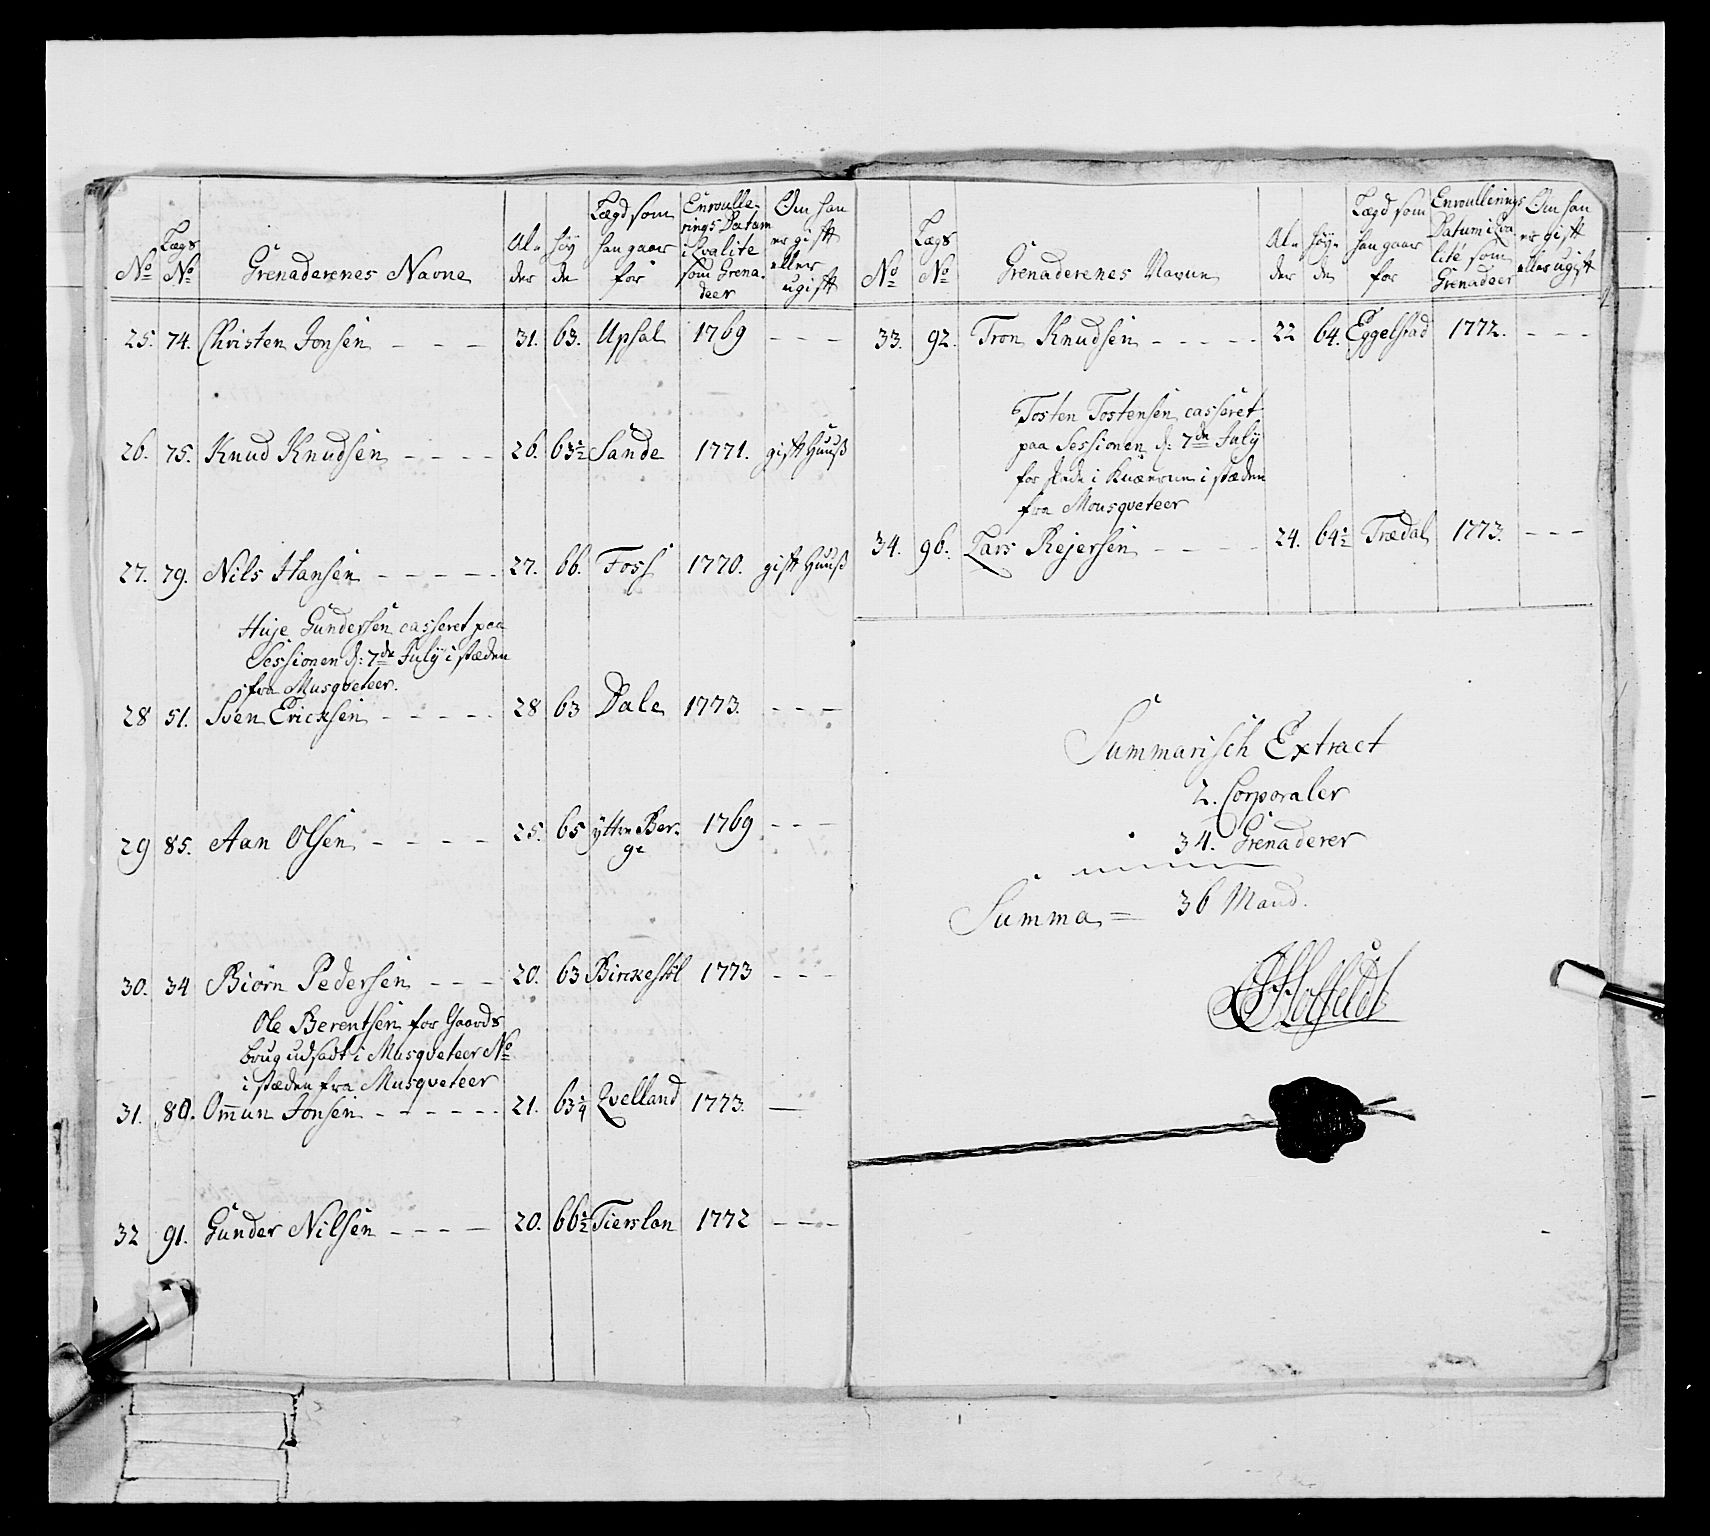 No Lægs No Grenaderenes Navne Al= der Høy de Lægd som han gaar for Enroulle- rings Datum i Qvalite som Grena- deer Om han er gift eller ugift
25. 74. Christen Jonsen - - - 31. 63. Upsal 1769 - - -
26. 75. Knud Knudsen - - - - 26. 63½ Sande 1771. gift Huuß
27. 79. Nils Hansen - - - - - 27. 66. Foss 1770. gift Huuß
Huje Gundersen casseret paa
Sessionen d: 7de July i stæden
fra Musqveteer.
28 51. Sven Ericksen - - - - - 28 63 Dale 1773. - - -
29 85. Aan Olsen - - - - 25. 65 ytre Ber-
ge 1769 - - -
30. 34 Biörn Pedersen - - - 20. 63 Birkestöl 1773 - - -
Ole Berentsen for Gaards
brug udsadt i Musqveteer No
i stæden fra Musqveteer
31. 80. Om̅un Jonsen - - - - - - 21. 63¼ Qvelland 1773. —
32 91. Gunder Nilsen - - - - 20. 66½ Tierslan 1772 - - -
No Lægs No Grenaderenes Navne Al= der Höy= de Lægd som han gaar for Enroullerings Datum i Qva lité som Grenadeer Om han er gift eller ugift
33. 92. Tron Knudsen - - - - - 22 64. Eggelstad 1772. - - -
Tosten Tostensen casseret
paa Sessionen d: 7de July
for skade i Knæerne i stæden
fra Mousqveteer
34. 96. Lars Rejersen - - - - 24. 64½ Trædal 1773. - - -
Summarisch Extract
2. Corporaler
34. Grenaderer
Summa = 36 Mand.